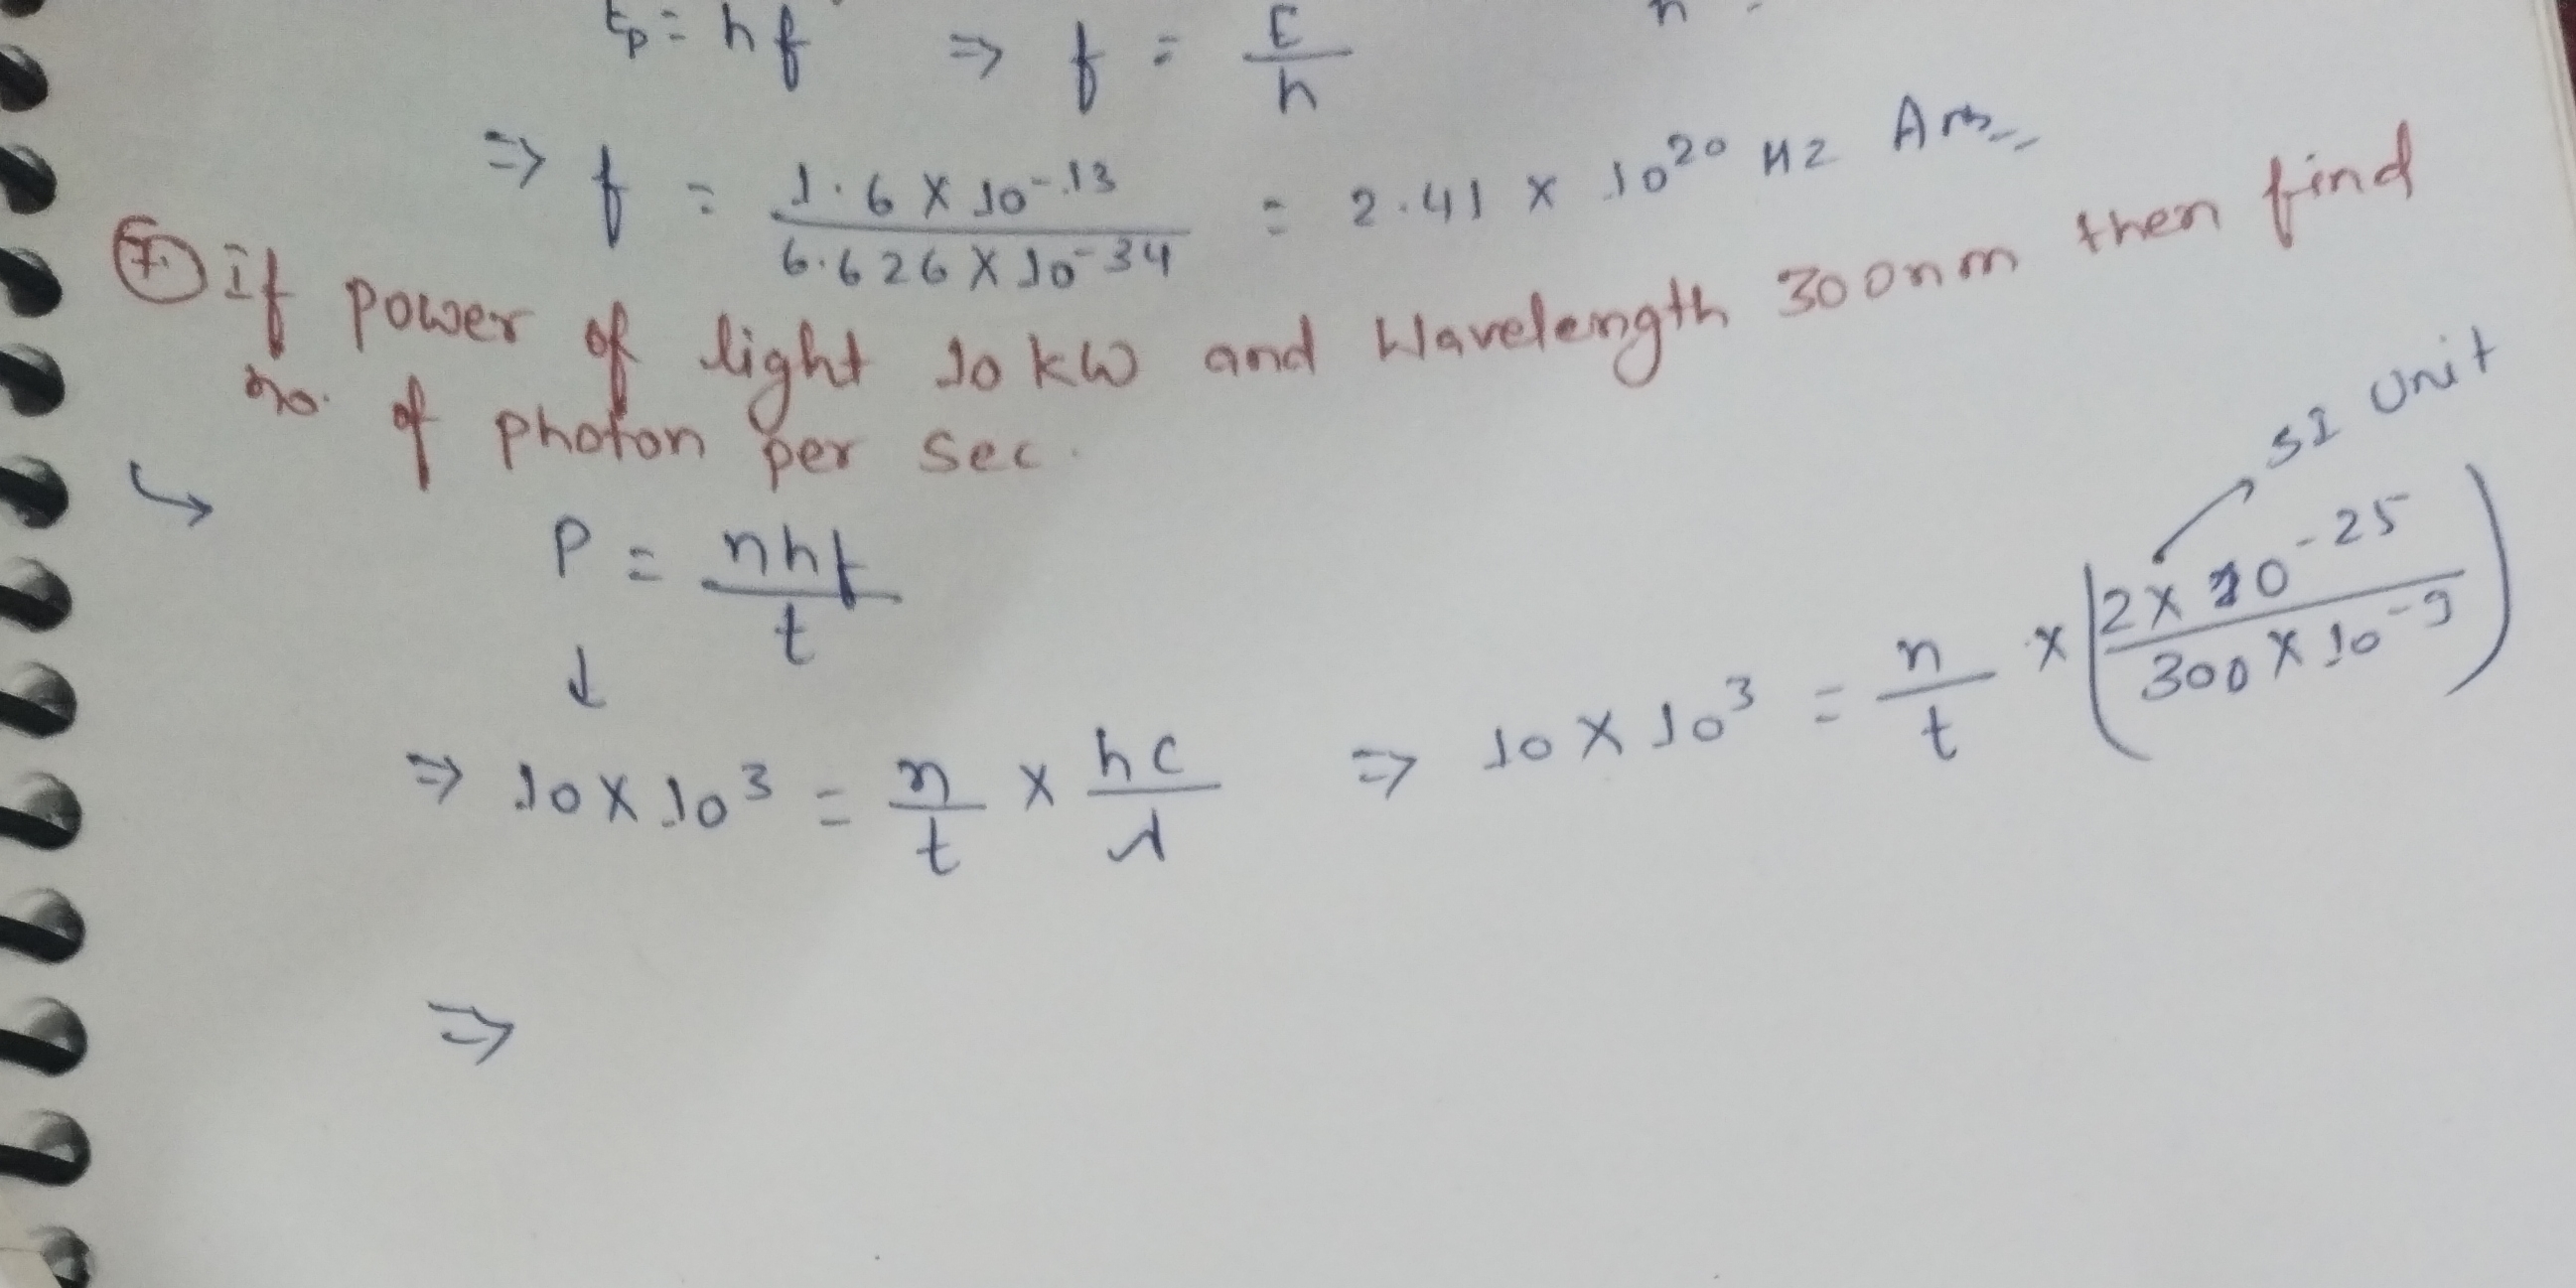 Ep = hf ⇒ f = E/h
⇒ f = 1.6 × 10^-13 / 6.626 × 10^-34 = 2.41 × 10^20 HZ Ans
7. If power of light 10 kW and Wavelength 300nm then find
no. of photon per sec.
P = nhf/t
SI Unit
⇒ 10 × 10^3 = n/t × hc/λ ⇒ 10 × 10^3 = n/t × (2 × 10^-25 / 300 × 10^-9)
⇒